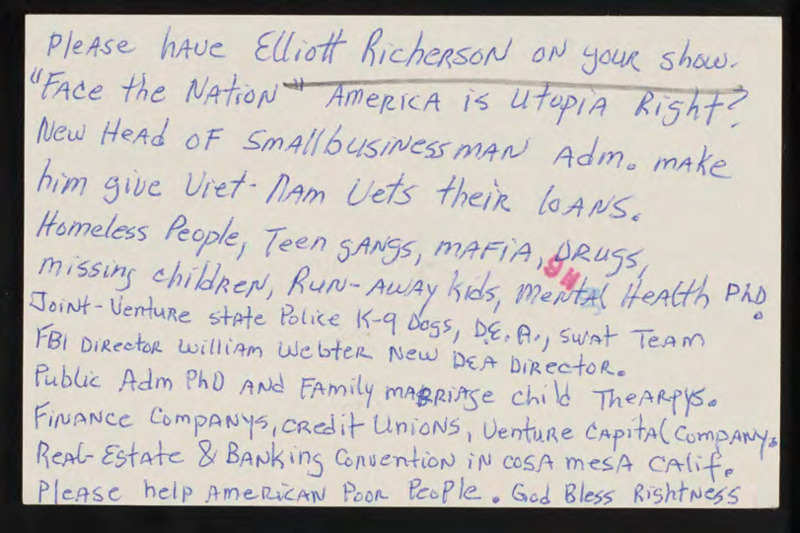 Please have Elliott Richerson on your show.
"Face the Nation" America is Utopia Right?
New Head of Smallbusinessman Adm. make
him give Viet-Nam Vets their loans.
Homeless People, Teen gangs, mafia, Drugs,
missing children, Run-away kids, Mental Health PhD.
Joint-Venture state Police K-9 Dogs, D.E.A., swat Team
FBI Director William Webter New DEA Director.
Public Adm PhD and Family marriage child Thearpys.
Finance Companys, credit Unions, Venture Capital Company.
Real-Estate & Banking Convention in cosa mesa Calif.
Please help American Poor People. God Bless Rightness